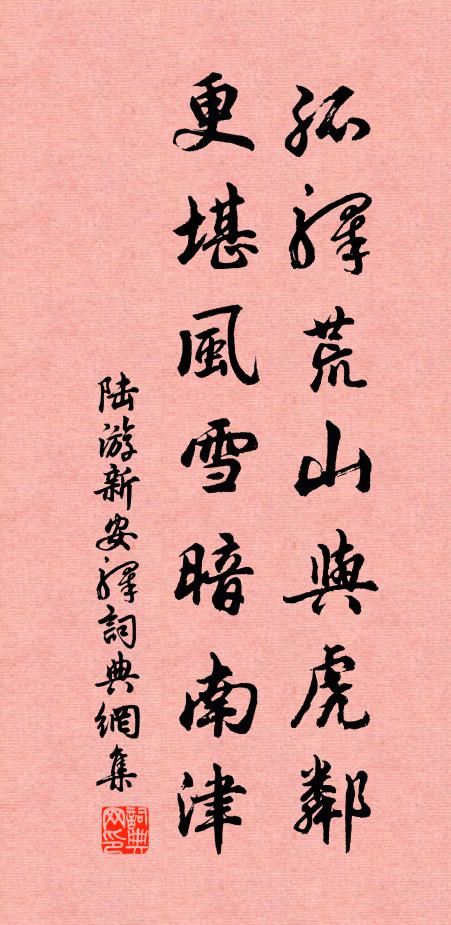 孤驛荒山與虎鄰
更堪風雪暗南津
陆游新安驛詞典網集
詞典网印